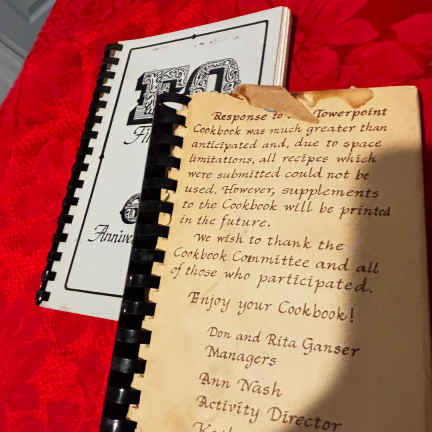 50
Anniver
Response to Towerpoint
Cookbook was much greater than
anticipated and, due to space
limitations, all recipes which
were submitted could not be
used. However, supplements
to the Cookbook will be printed
in the future.
We wish to thank the
Cookbook Committee and all
of those who participated.
Enjoy your Cookbook!
Don and Rita Ganser
Managers
Ann Nash
Activity Director